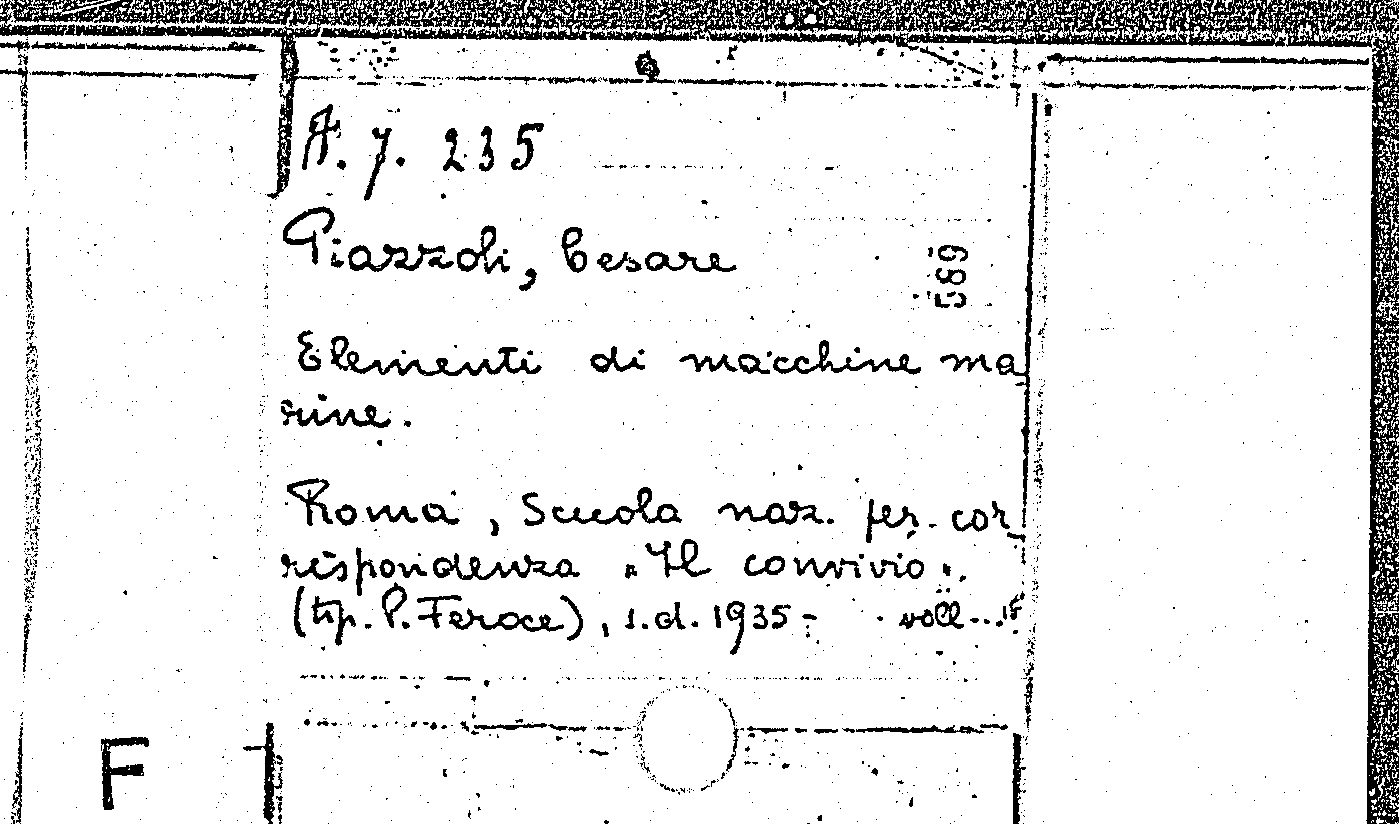 A. 7. 235
Piazzoli, Cesare
589
Elementi di macchine ma
rine.
Roma, Scuola naz. per cor
rispondenza "Il convivio".
(tip. P. Feroce), s.d. 1935- voll...
F